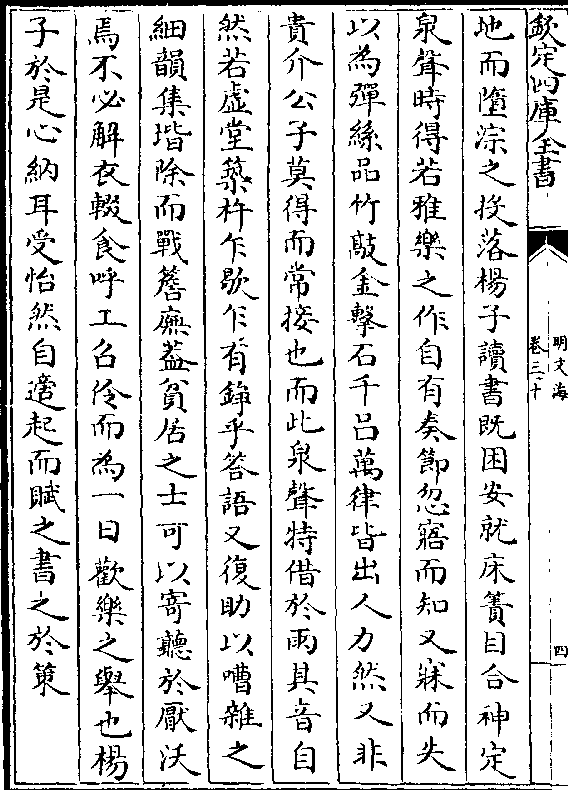 欽定四庫全書
明文海
卷三十
四
地而墮淙之投落楊子讀書既困安就床簀目合神定
泉聲時得若雅樂之作自有奏節忽寤而知又寐而失
以為彈絲品竹敲金擊石千呂萬律皆出人力然又非
貴介公子莫得而常接也而此泉聲特借於雨其音自
然若虛堂築杵乍歇乍有錚乎答語又復助以嘈雜之
細韻集堦除而戰簷廡葢貧居之士可以寄聽於厭沃
焉不必解衣輟食呼工召伶而為一日歡樂之舉也楊
子於是心納耳受怡然自適起而賦之書之於策